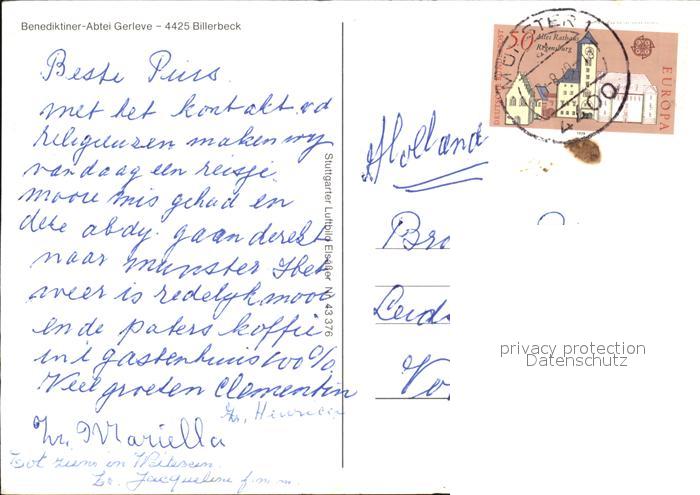 Benediktiner-Abtei Gerleve – 4425 Billerbeck
Beste Puss
met het kontakt vd
religieuzen maken wy
vandaag een reisje.
mooie mis gehad en
deze abdy. gaan derekt
naar munster Het
weer is redelyk mooi
en de paters koffie
in 't gastenhuis 100%.
Veel groeten Clementin
Zr. Mariella
Zr. Jacqueline f.m.m.
Stuttgarter Luftbild Elsäßer Nr. 43 376
50
Altes Rathaus
Regensburg
EUROPA
MÜNSTER 1
4400
Holland
Bro
Leid
Vo
privacy protection
Datenschutz